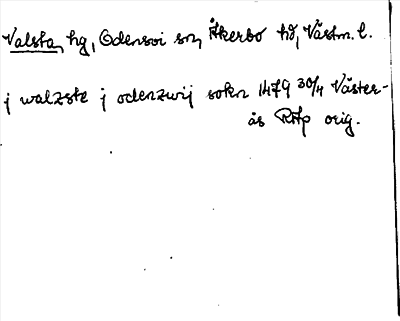 Valsta, hg, Odensvi sn, Åkerbo hd, Västm. l.
j walzste j odenzwij sokn 1479 30/4 Väster-
ås RAp orig.